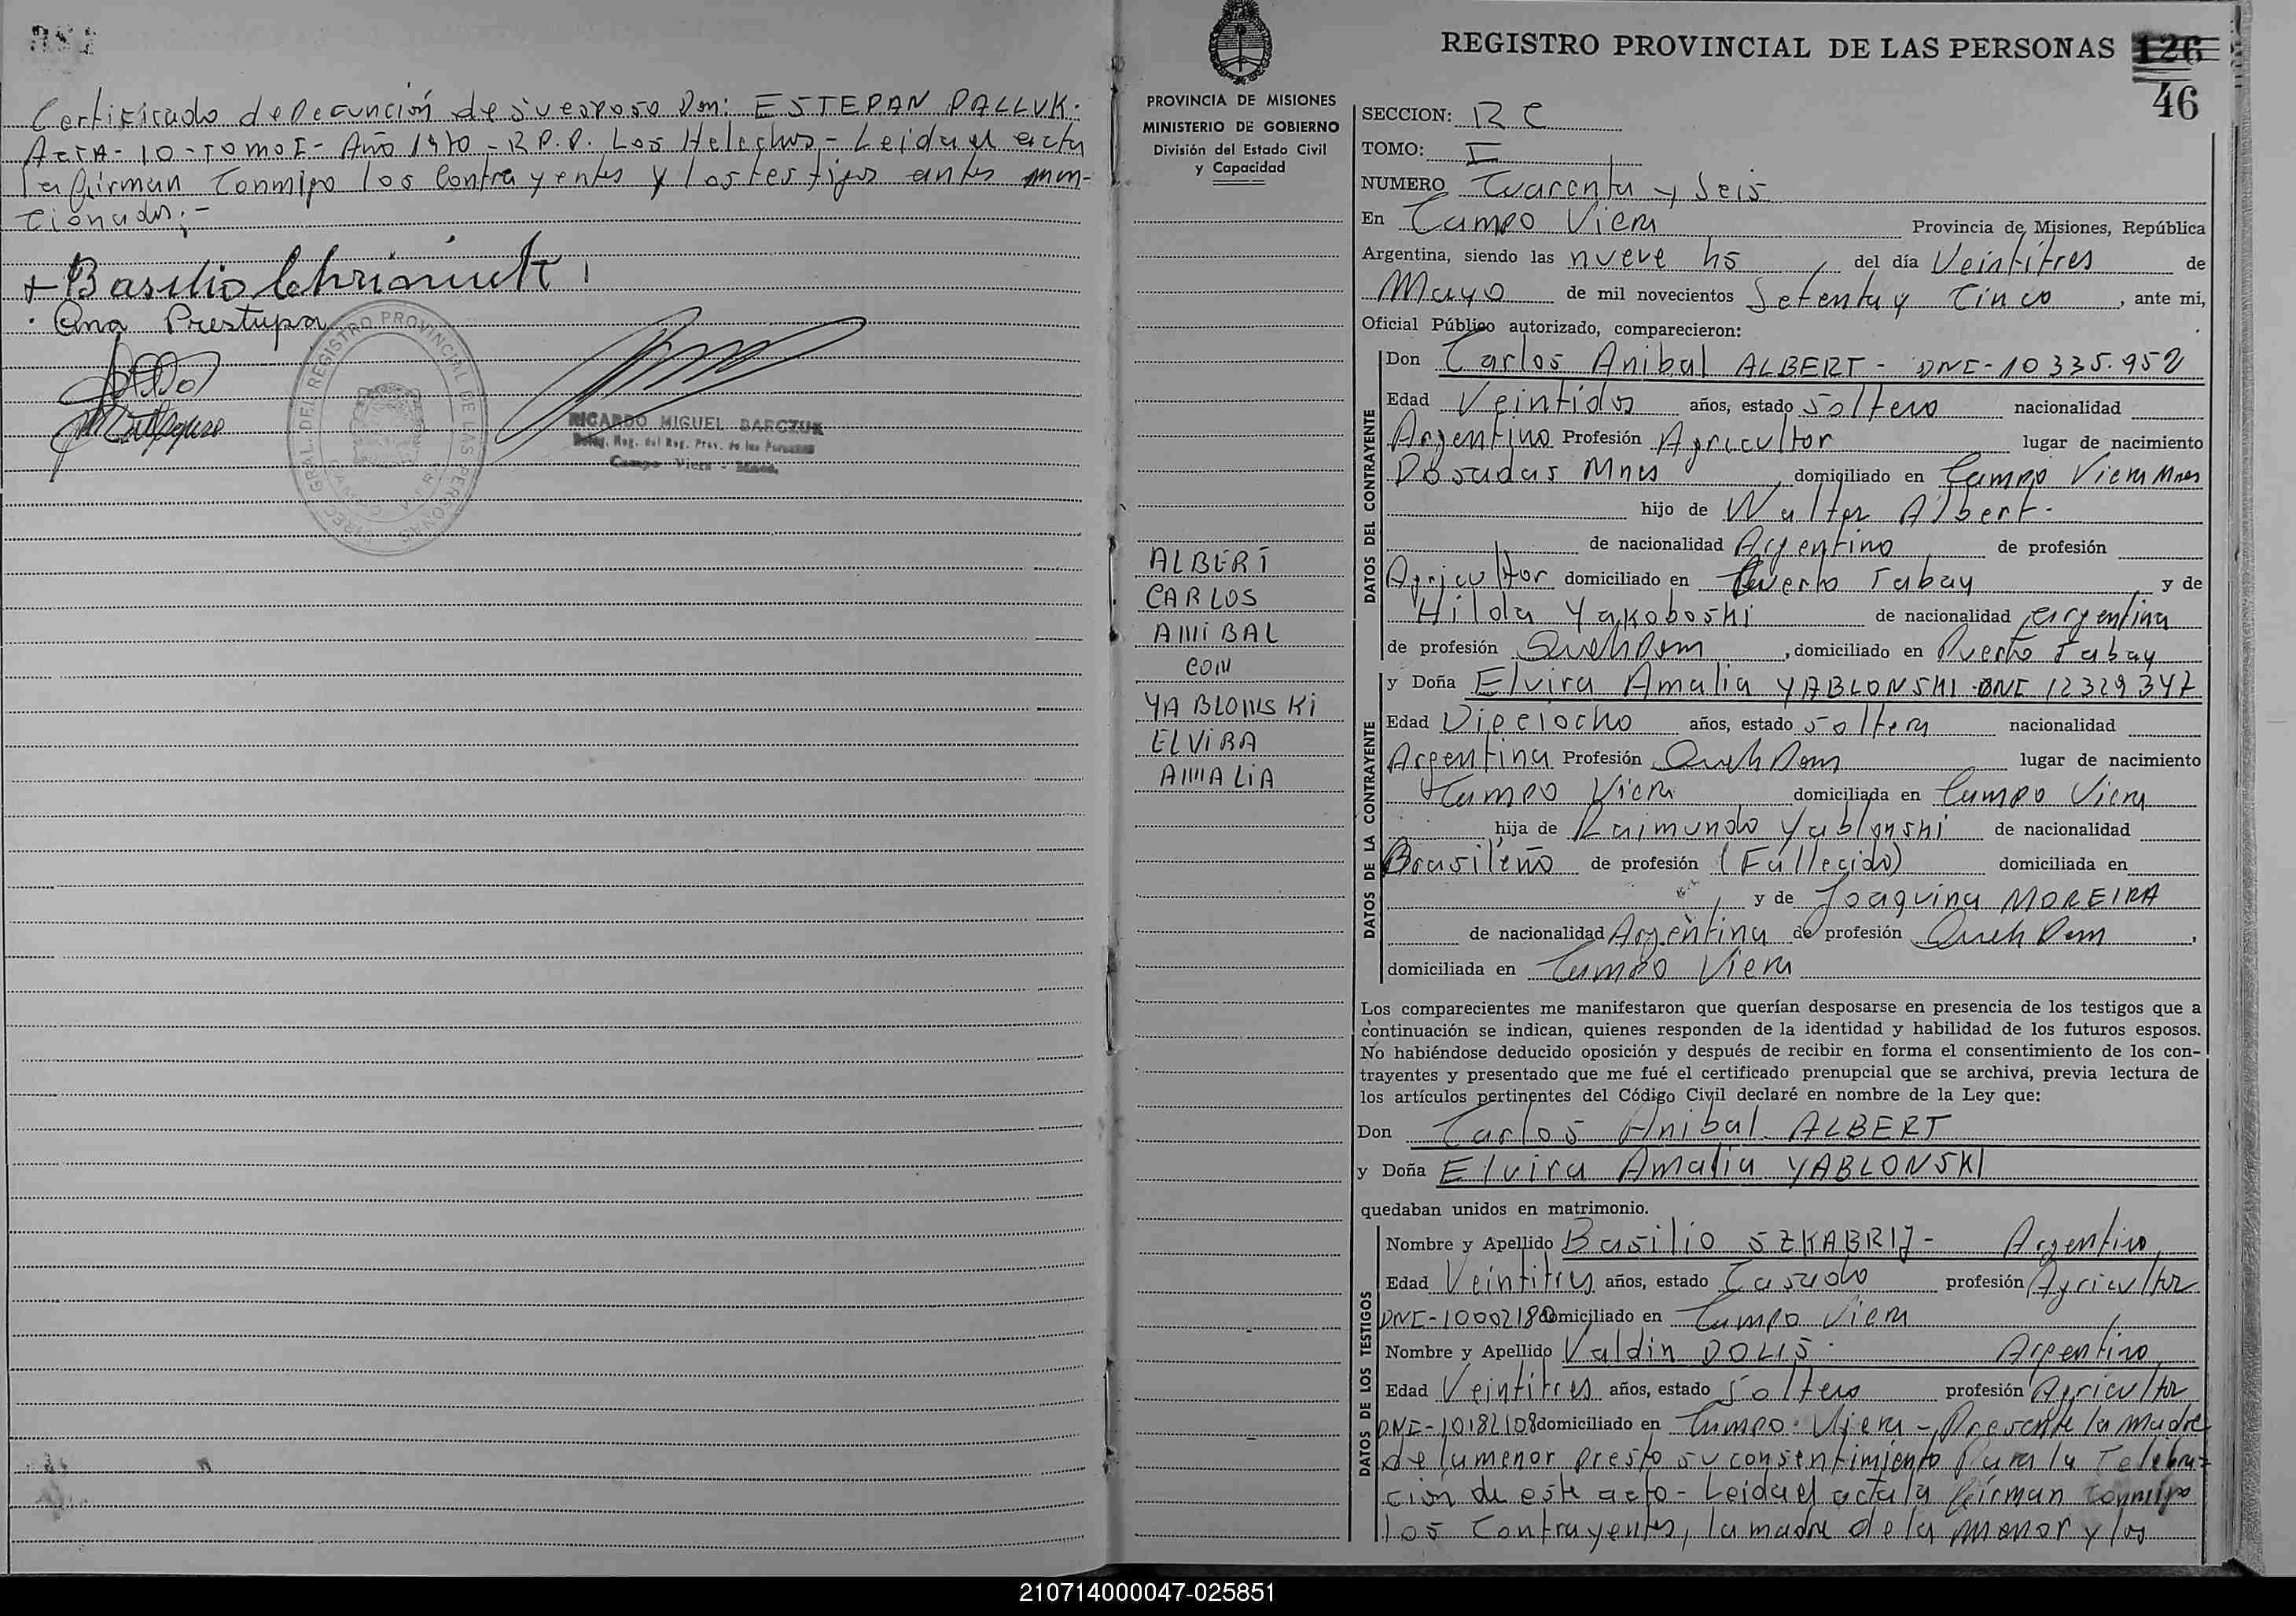 Certificado de Defunción de su esposo Don: ESTEPAN PALLUK.
ACTA - 10 - TOMO I - Año 1970 - R.P.P. Los Helechos - Leida el acta
la firman conmigo los contrayentes y los testigos antes men-
cionados.-
+ Basilio Chrisniuk
Ana Prestupa
DIREC. GRAL. DEL REGISTRO PROVINCIAL DE LAS PERSONAS
RICARDO MIGUEL BARCZUK
Deleg. Reg. del Reg. Prov. de las Personas
Campo Viera - Mnes.
REGISTRO PROVINCIAL DE LAS PERSONAS 126
46
PROVINCIA DE MISIONES
MINISTERIO DE GOBIERNO
División del Estado Civil
y Capacidad
ALBERT
CARLOS
ANIBAL
CON
YABLONSKI
ELVIRA
AMALIA
SECCION: RC
TOMO: I
NUMERO Cuarenta y Seis
En Campo Viera Provincia de Misiones, República
Argentina, siendo las nueve hs del día Veintitres de
Mayo de mil novecientos Setenta y Cinco, ante mi,
Oficial Público autorizado, comparecieron:
DATOS DEL CONTRAYENTE
Don Carlos Anibal ALBERT - DNI - 10335.952
Edad Veintidos años, estado soltero nacionalidad
Argentino Profesión Agricultor lugar de nacimiento
Posadas Mnes, domiciliado en Campo Viera Mnes
hijo de Walter Albert.
de nacionalidad Argentino de profesión
Agricultor domiciliado en Puerto Tabay y de
Hilda Yakoboski de nacionalidad argentina
de profesión Queh Dom, domiciliado en Puerto Tabay
DATOS DE LA CONTRAYENTE
y Doña Elvira Amalia YABLONSKI DNI 12329347
Edad Dieciocho años, estado soltera nacionalidad
Argentina Profesión Queh Dom lugar de nacimiento
Campo Viera domiciliada en Campo Viera
hija de Raimundo Yablonski de nacionalidad
Brasileño de profesión (Fallecido) domiciliada en
y de Joaquina MOREIRA
de nacionalidad Argentina de profesión Queh Dom,
domiciliada en Campo Viera
Los comparecientes me manifestaron que querían desposarse en presencia de los testigos que a
continuación se indican, quienes responden de la identidad y habilidad de los futuros esposos.
No habiéndose deducido oposición y después de recibir en forma el consentimiento de los con-
trayentes y presentado que me fué el certificado prenupcial que se archiva, previa lectura de
los artículos pertinentes del Código Civil declaré en nombre de la Ley que:
Don Carlos Anibal ALBERT
y Doña Elvira Amalia YABLONSKI
quedaban unidos en matrimonio.
DATOS DE LOS TESTIGOS
Nombre y Apellido Basilio SZKABRIJ - Argentino
Edad Veintitres años, estado Casado profesión Agricultor
DNI-10002180 domiciliado en Campo Viera
Nombre y Apellido Valdin DOLIS. Argentino
Edad Veintitres años, estado Soltero profesión Agricultor
DNI-10182108 domiciliado en Campo Viera - Presente la madre
de la menor presto su consentimiento para la celebra-
ción de este acto - Leida el acta la firman conmigo
los contrayentes, la madre de la menor y los
210714000047-025851